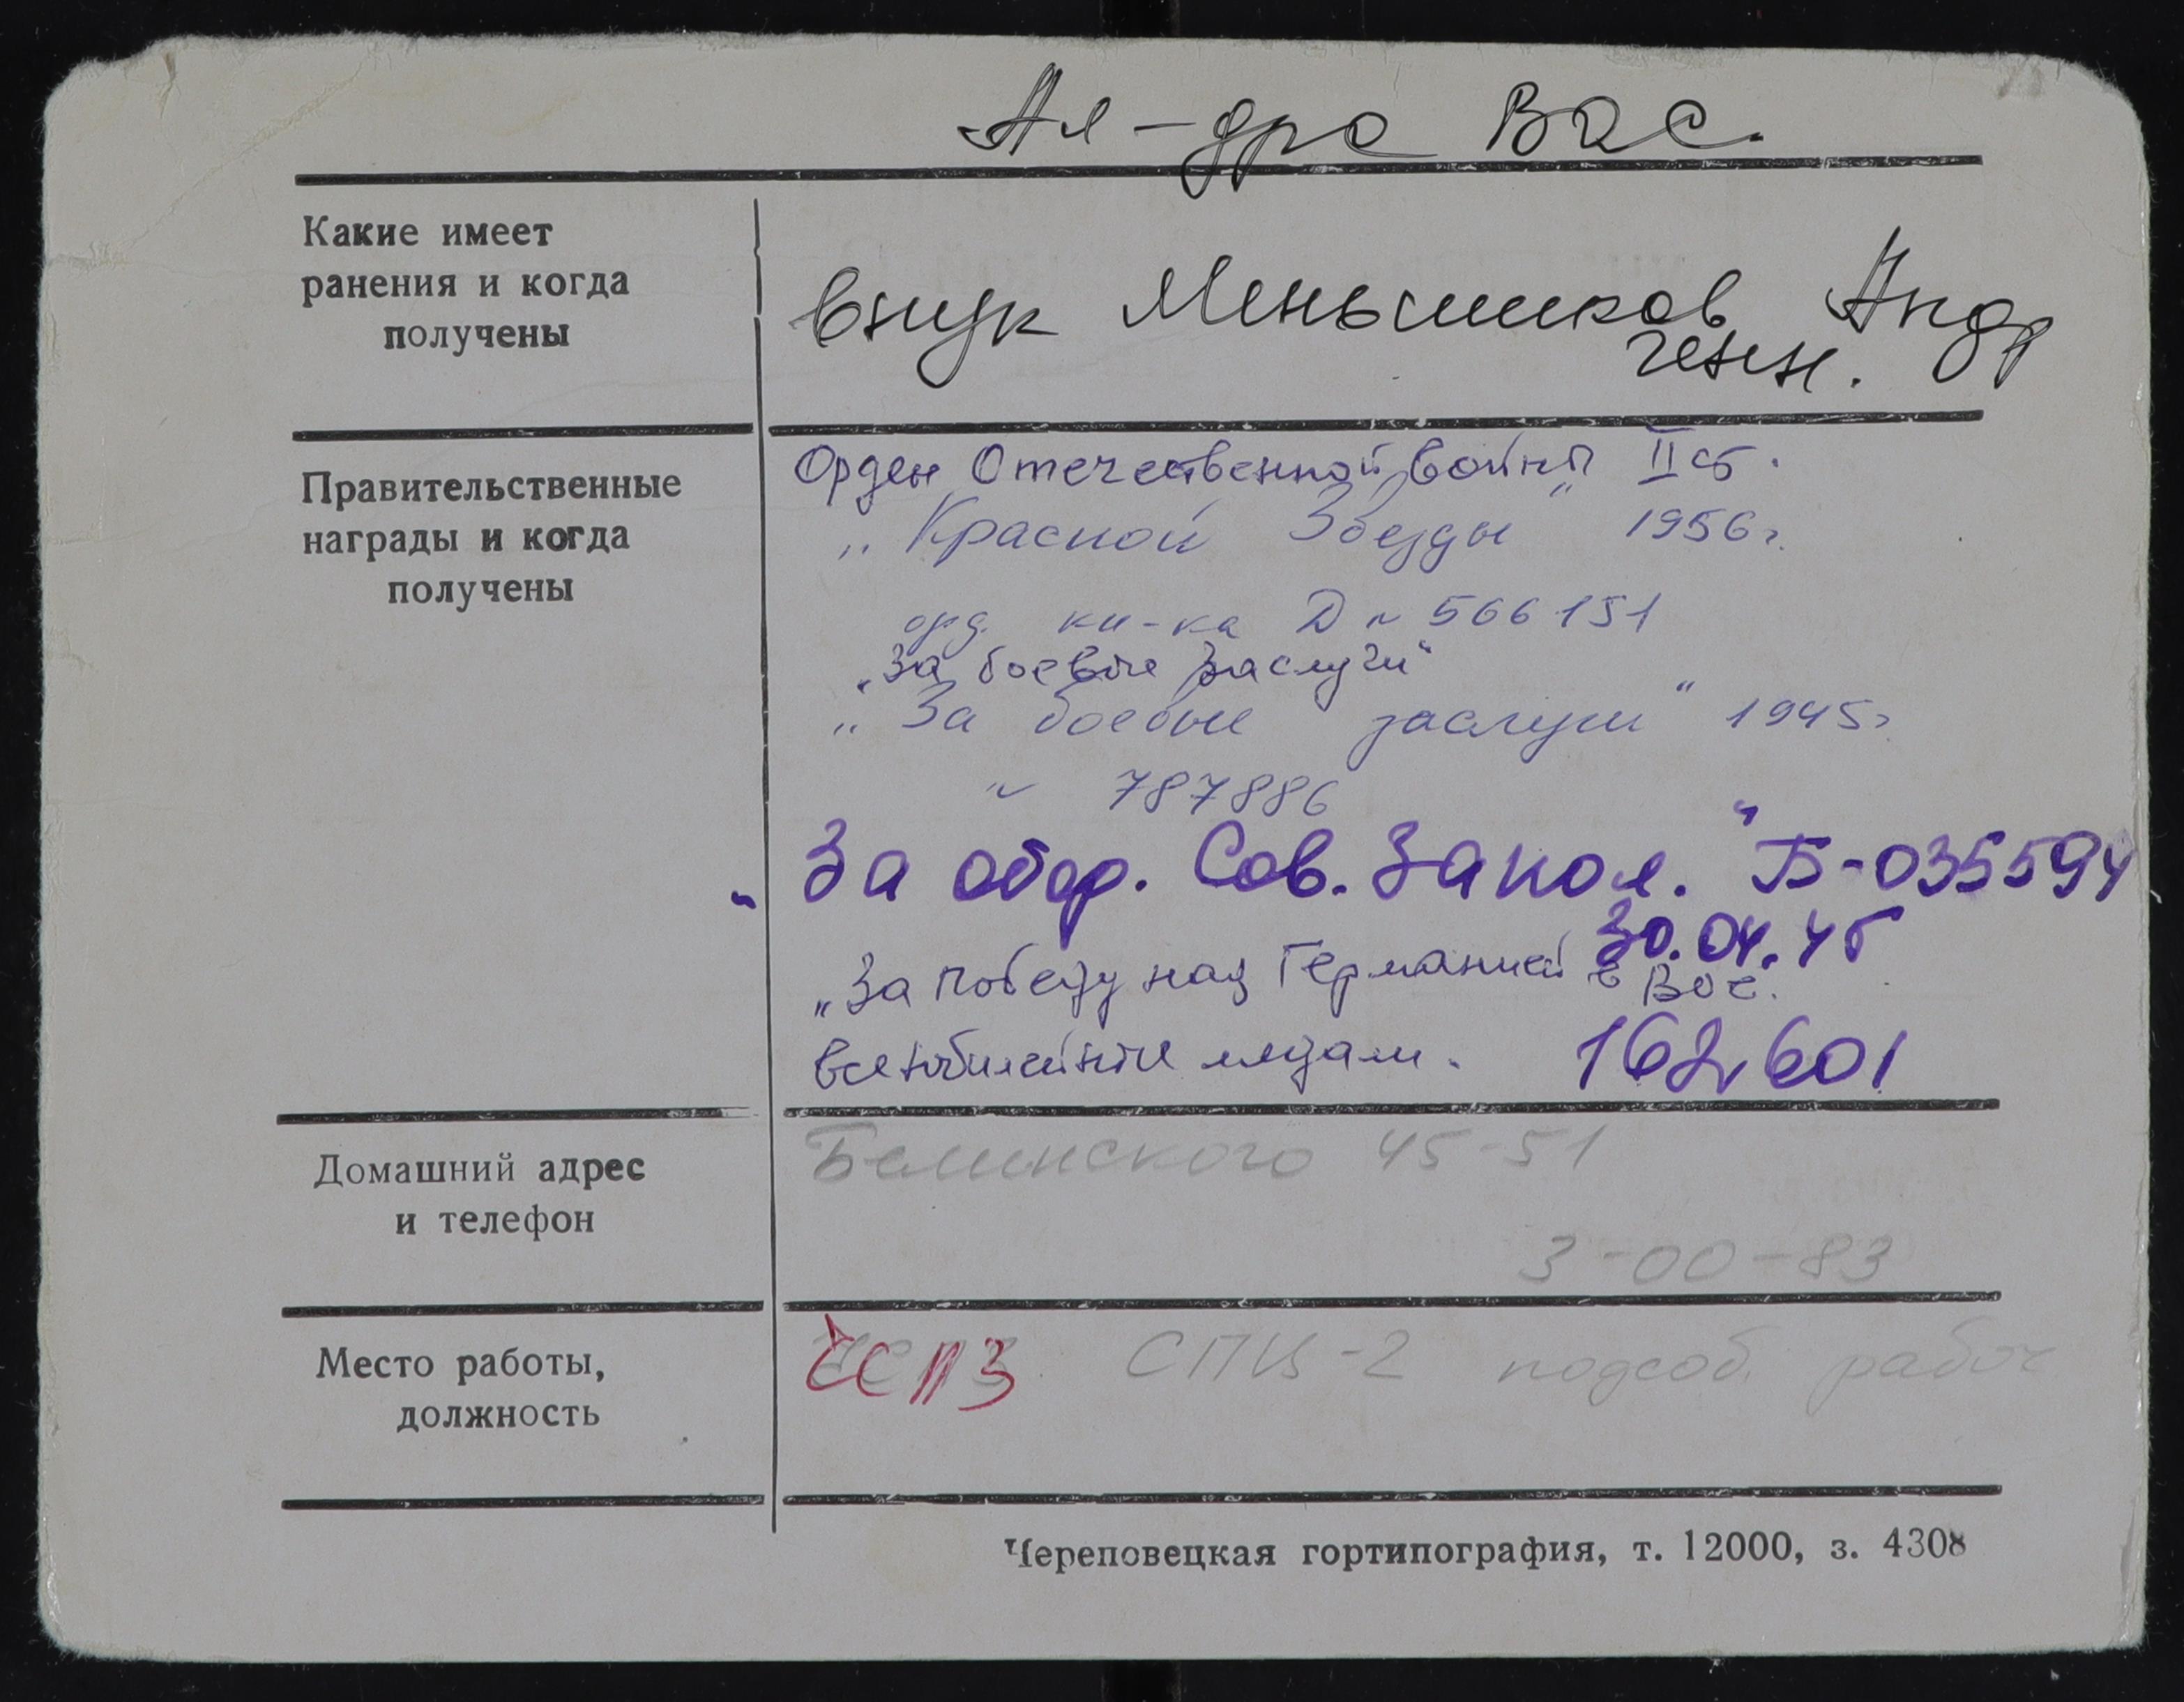 Ал-дра Вас.
Какие имеет
ранения и когда
получены
внук Меньшиков Андр
Генн.
Правительственные
награды и когда
получены
Орден Отечественной войны II ст.
„Красной Звезды" 1956 г.
орд. кн-ка Д № 566151
„За боевые заслуги"
„За боевые заслуги" 1945 г.
№ 787886
„За обор. Сов. Запол." Б-035594
30.04.45
„За победу над Германией в Вов.
все юбилейные медали. 162,601
Домашний адрес
и телефон
Белинского 45-51
3-00-83
Место работы,
должность
ЧСПЗ СПЦ-2 подсоб. рабоч
Череповецкая гортипография, т. 12000, з. 4308